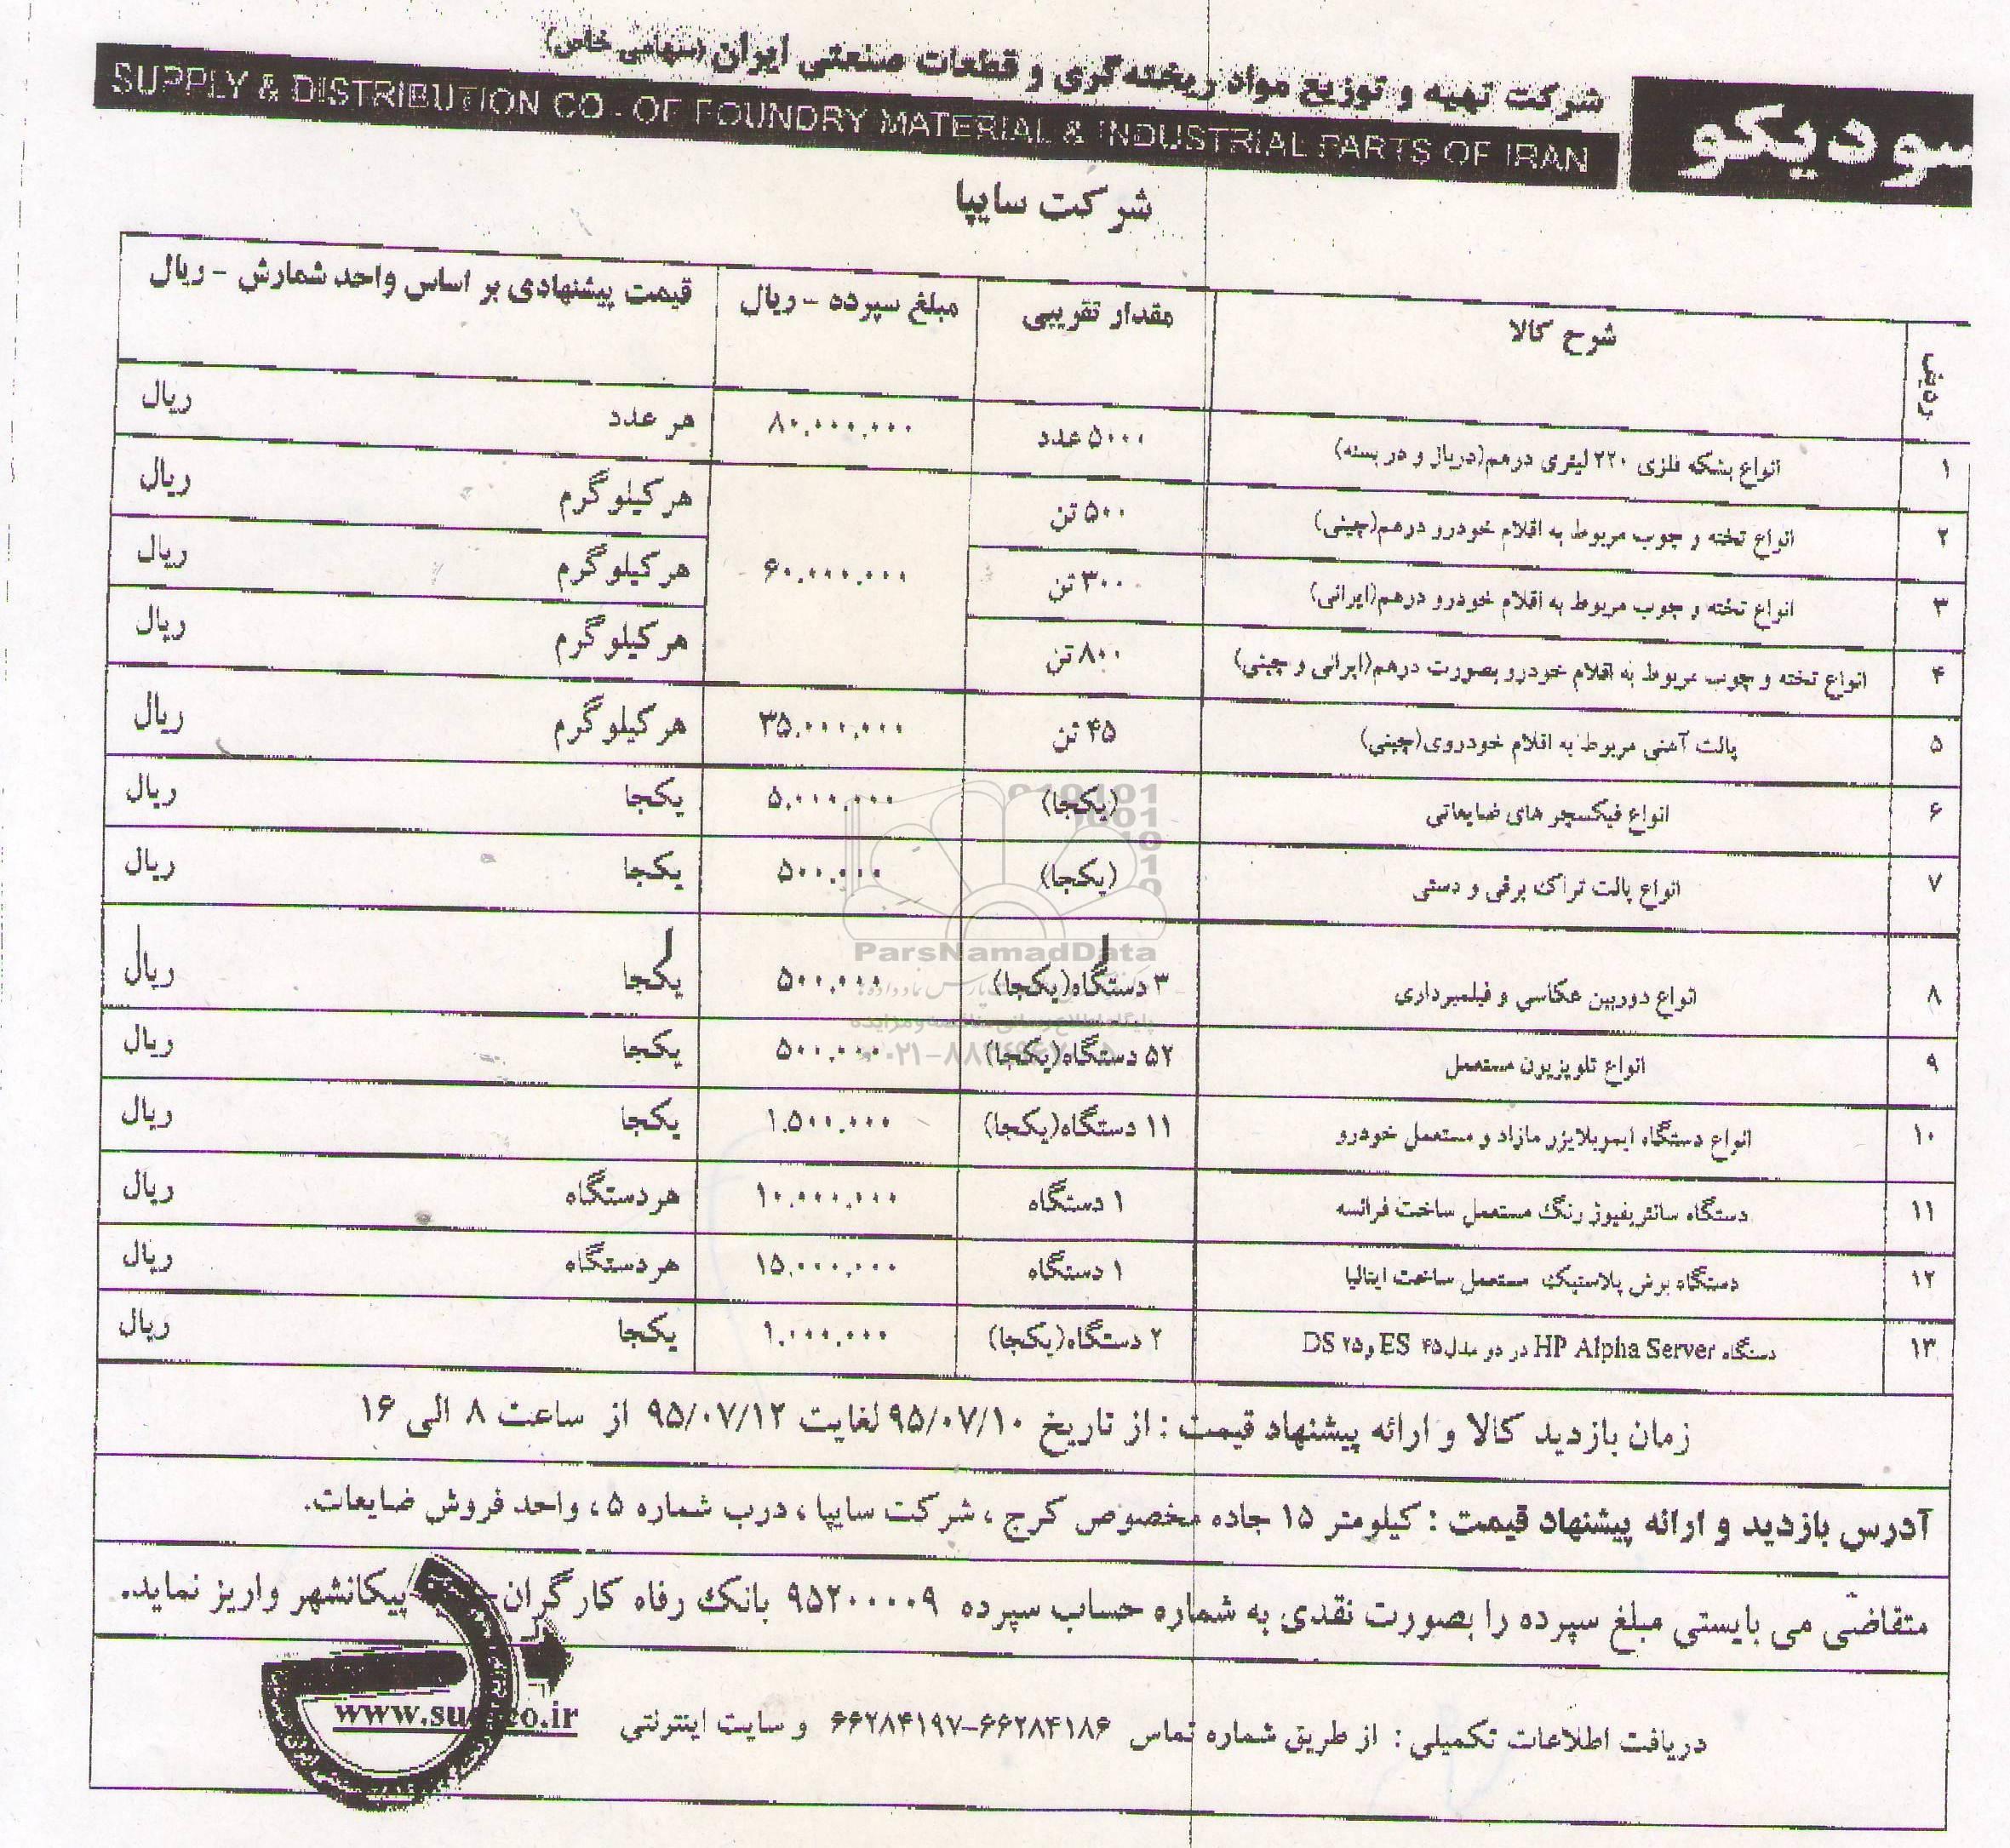 شرکت تهیه و توزیع مواد ریخته‌گری و قطعات صنعتی ایران (سهامی خاص)
سودیکو
SUPPLY & DISTRIBUTION CO. OF FOUNDRY MATERIAL & INDUSTRIAL PARTS OF IRAN
شرکت سایپا
ردیف شرح کالا مقدار تقریبی مبلغ سپرده - ریال قیمت پیشنهادی بر اساس واحد شمارش - ریال
۱ انواع بشکه فلزی ۲۲۰ لیتری درهم(دربال و در بسته) ۵۰۰۰ عدد ۸۰.۰۰۰.۰۰۰ هر عدد ریال
۲ انواع تخته و چوب مربوط به اقلام خودرو درهم(چینی) ۵۰۰ تن هر کیلوگرم ریال
۳ انواع تخته و چوب مربوط به اقلام خودرو درهم(ایرانی) ۳۰۰ تن ۶۰.۰۰۰.۰۰۰ هر کیلوگرم ریال
۴ انواع تخته و چوب مربوط به اقلام خودرو بصورت درهم(ایرانی و چینی) ۸۰۰ تن هر کیلوگرم ریال
۵ پالت آهنی مربوط به اقلام خودروی(چینی) ۴۵ تن ۳۵.۰۰۰.۰۰۰ هر کیلوگرم ریال
۶ انواع فیکسچر های ضایعاتی (یکجا) ۵.۰۰۰.۰۰۰ یکجا ریال
۷ انواع پالت تراک برقی و دستی (یکجا) ۵۰۰.۰۰۰ یکجا ریال
۸ انواع دوربین عکاسی و فیلمبرداری ۳ دستگاه(یکجا) ۵۰۰.۰۰۰ یکجا ریال
۹ انواع تلویزیون مستعمل ۵۲ دستگاه(یکجا) ۵۰۰.۰۰۰ یکجا ریال
۱۰ انواع دستگاه ایموبلایزر مازاد و مستعمل خودرو ۱۱ دستگاه(یکجا) ۱.۵۰۰.۰۰۰ یکجا ریال
۱۱ دستگاه سانتریفیوژ رنگ مستعمل ساخت فرانسه ۱ دستگاه ۱۰.۰۰۰.۰۰۰ هر دستگاه ریال
۱۲ دستگاه برش پلاستیک مستعمل ساخت ایتالیا ۱ دستگاه ۱۵.۰۰۰.۰۰۰ هر دستگاه ریال
۱۳ دستگاه HP Alpha Server در دو مدل ES ۴۵ و DS ۲۵ ۲ دستگاه(یکجا) ۱.۰۰۰.۰۰۰ یکجا ریال
ParsNamadData
پایگاه اطلاع رسانی مناقصه و مزایده
زمان بازدید کالا و ارائه پیشنهاد قیمت : از تاریخ ۹۵/۰۷/۱۰ لغایت ۹۵/۰۷/۱۲ از ساعت ۸ الی ۱۶
آدرس بازدید و ارائه پیشنهاد قیمت : کیلومتر ۱۵ جاده مخصوص کرج ، شرکت سایپا ، درب شماره ۵ ، واحد فروش ضایعات.
متقاضی می بایستی مبلغ سپرده را بصورت نقدی به شماره حساب سپرده ۹۵۲۰۰۰۰۹ بانک رفاه کارگران- پیکانشهر واریز نماید.
دریافت اطلاعات تکمیلی : از طریق شماره تماس ۶۶۲۸۴۱۸۶-۶۶۲۸۴۱۹۷ و سایت اینترنتی